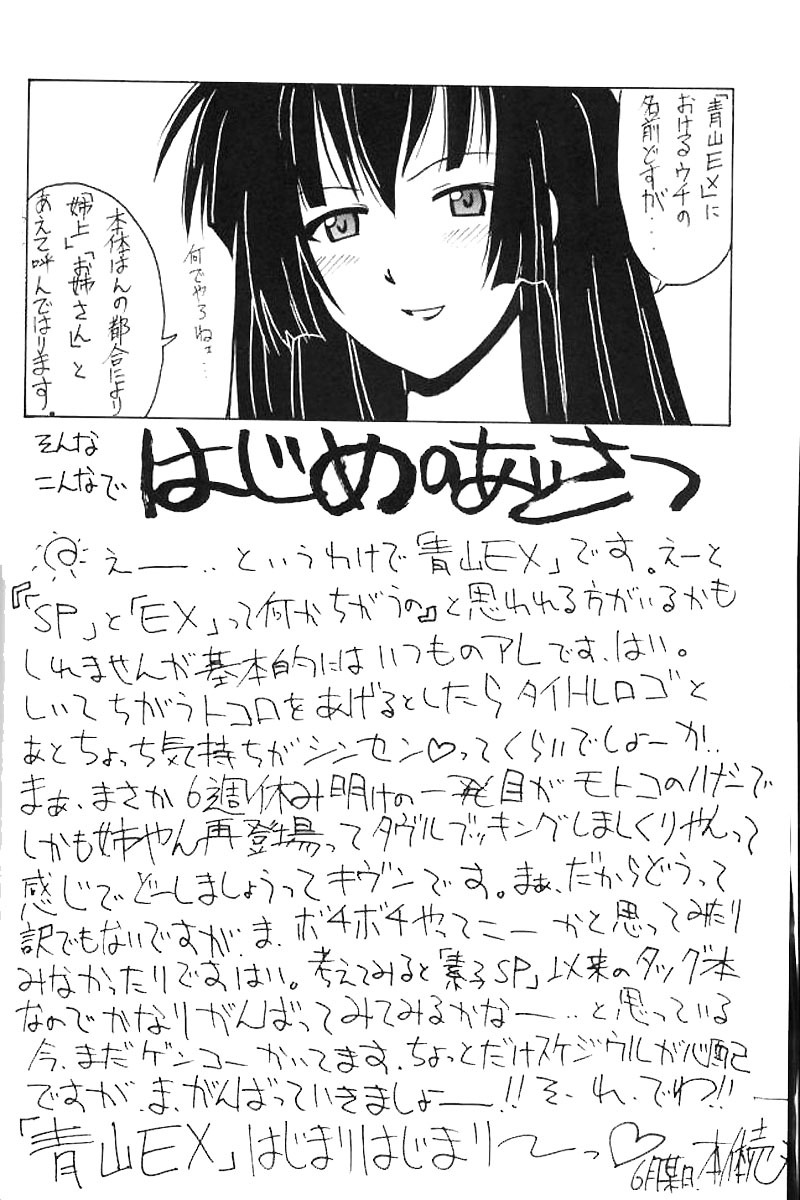 「青山EX」に
おけるウチの
名前どすが...
何でやろねェ...
本体はんの都合により
姉上」「お姉さん」と
あえて呼んではります。
そんな
こんなで
はじめのあいさつ
えー...というわけで「青山EX」です。えーと
『「SP」と「EX」って何かちがうの』と思われる方がいるかも
しれませんが基本的にはいつものアレです、はい。
しいてちがうトコロをあげるとしたらタイトルロゴと
あとちょっち気持ちがシンセン♡ってくらいでしょーか..
まぁ、まさか6週休み明けの一発目がモトコのハナシで
しかも姉やん再登場ってダヴルブッキングしましくりやんって
感じでどーしましょうってキヴンです。まぁ、だからどうって
訳でもないですが、ま、ボチボチやってこーかと思ってみたり
みなかったりですはい。考えてみると「素子SP」以来のタッグ本
なのでかなりがんばってみてみるかなー...と思っている
今、まだゲンコーかいてます、ちょっとだけスケジウルが心配
ですが、ま、がんばっていきましょー!!そ、れ、でわ!!
「青山EX」はじまりはじまり〜っ♡
6月某日.本体売